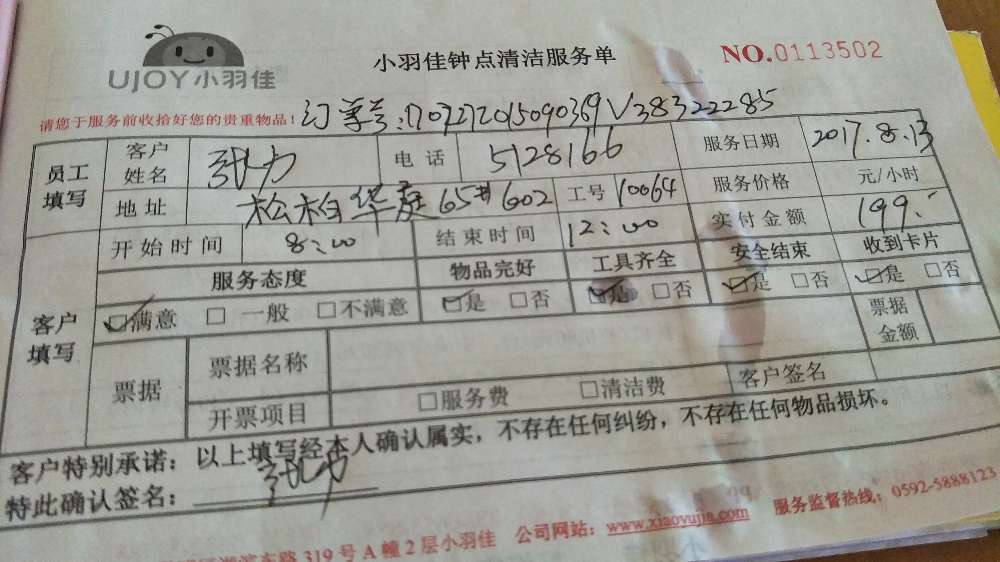 UJOY小羽佳
小羽佳钟点清洁服务单
NO.0113502
请您于服务前收拾好您的贵重物品!
订单号:1707272015090369V38322285
员工填写 客户姓名 张力 电话 5128166 服务日期 2017.8.13
地址 松柏华庭65#602 工号 10064 服务价格 元/小时
客户填写 开始时间 8:00 结束时间 12:00 实付金额 199.
服务态度 物品完好 工具齐全 安全结束 收到卡片
☑满意 □一般 □不满意 ☑是 □否 ☑是 □否 ☑是 □否 ☑是 □否
票据 票据名称 票据金额
开票项目 □服务费 □清洁费 客户签名
客户特别承诺:以上填写经本人确认属实,不存在任何纠纷,不存在任何物品损坏。
特此确认签名: 张力
东路319号A幢2层小羽佳 公司网站:www.xiaoyujia.com 服务监督热线:0592-5888123